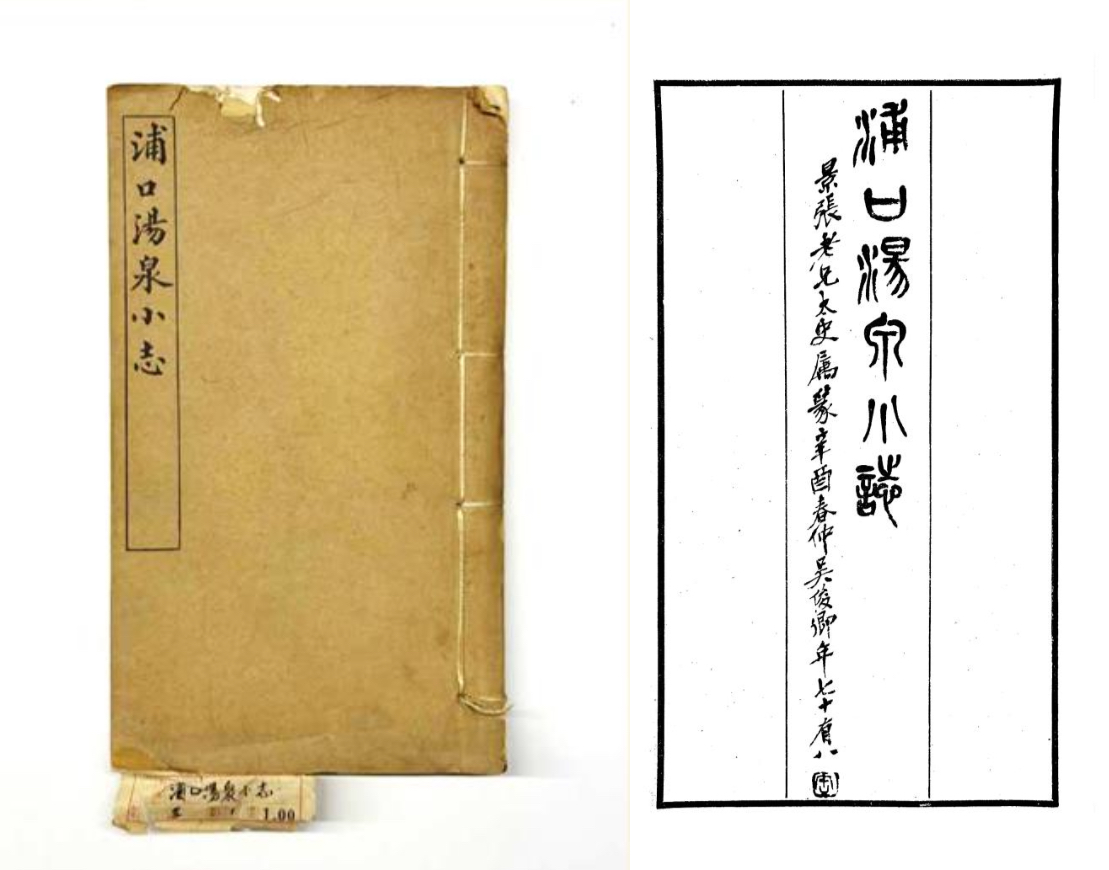 浦口湯泉小志
浦口湯泉小志
1.00
浦口湯泉小誌
景張老兄太史属篆辛酉春仲吴俊卿年七十有八